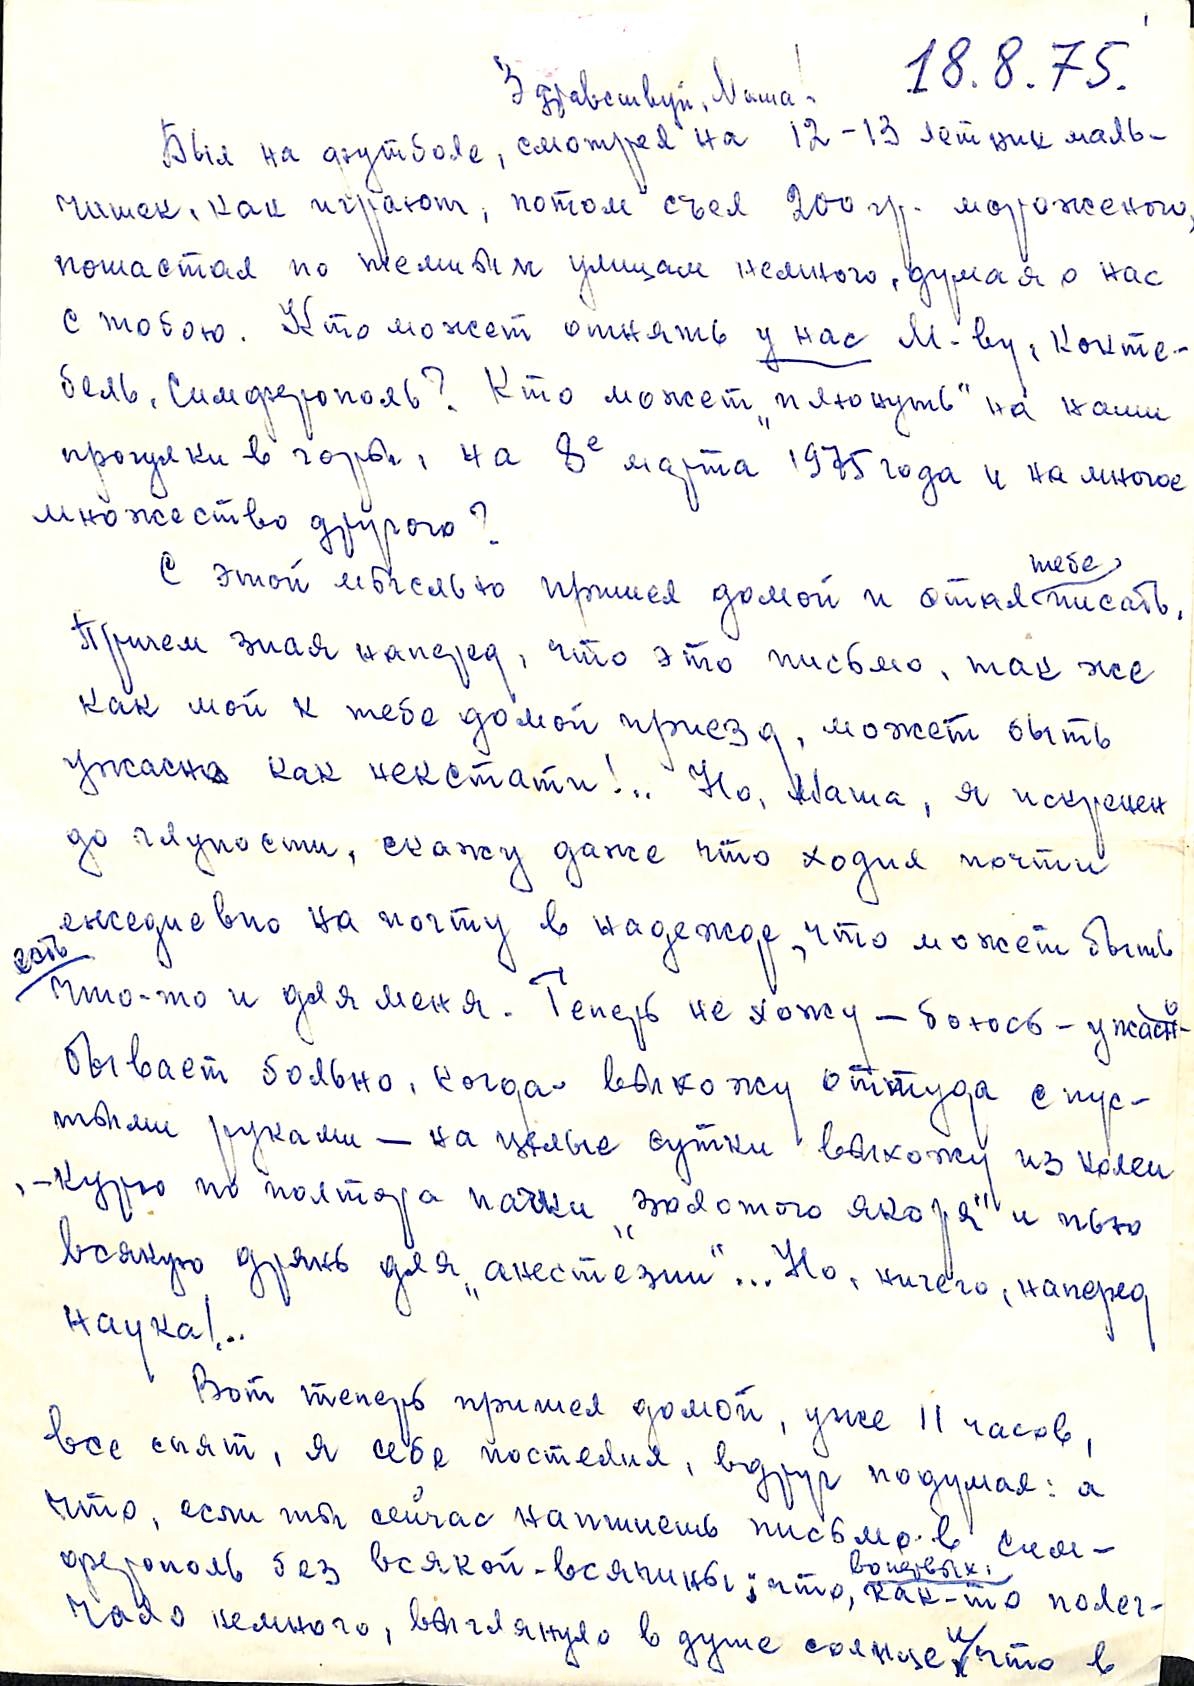 18.8.75.
Здравствуй, Маша!
Был на футболе, смотрел на 12-13 летних маль-
чишек, как играют, потом съел 200 гр. мороженого,
пошастал по темным улицам немного, думая о нас
с тобою. Кто может отнять у нас М-ву, Кокте-
бель, Симферополь? Кто может „плюнуть" на наши
прогулки в горы, на 8е марта 1975 года и на многое
множество другого?
С этой мыслью пришел домой и стал тебе писать.
Причем зная наперед, что это письмо, так же
как мой к тебе домой приезд, может быть
ужасно как некстати!.. Но, Маша, я искренен
до глупости, скажу даже что ходил почти
ежедневно на почту в надежде, что может быть
есть что-то и для меня. Теперь не хожу — боюсь - ужасно
бывает больно, когда выхожу оттуда с пус-
тыми руками — на целые сутки выхожу из колеи
, - курю по полтора пачки „золотого якоря" и пью
всякую дрянь для „анестезии"... Но, ничего, наперед
наука!..
Вот теперь пришел домой, уже 11 часов,
все спят, я себе постелил, вдруг подумал: а
что, если ты сейчас напишешь письмо в Сим-
ферополь без всякой-всячины; что, во первых, как-то полег-
чало немного, выглянуло в душе солнце и что в